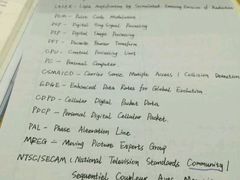 LASER - Light Amplification by Stimulated Emission of Radiation
PCM - Pulse Code Modulation
DSP - Digital Signal Processing
DIP - Digital Image Processing
DFT - Discrete Fourier Transform
CPU - Central Processing Unit
PC - Personal Computer
CSMA/CD - Carrier Sense Multiple Access / Collision Detection
EDGE - Enhanced Data Rates for Global Evolution
CDPD - Cellular Digital Packet Data
PDCP - Personal Digital Cellular Packet
PAL - Phase Alteration Line
MPEG - Moving Picture Experts Group
NTSC/SECAM (National Television Standards Community/
Sequential Couleur Avec